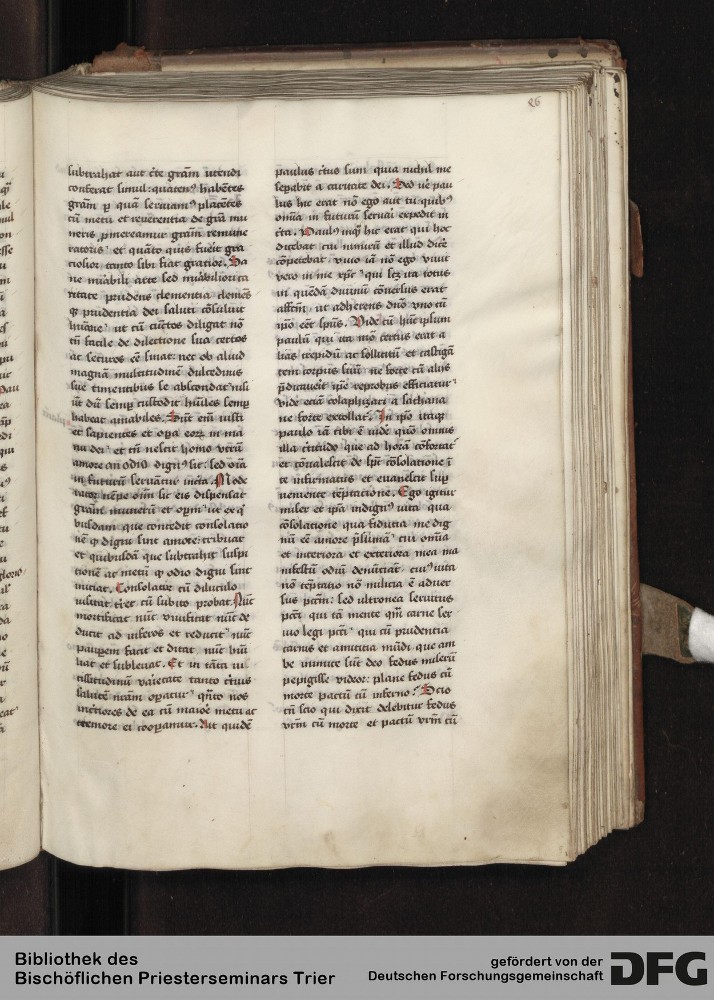 86
subtrahat aut cte gram utendi
conferat simul: quaten9 habētes
gram p quā seruiam9 placētes
cū metu et reuerentia de gra mu
neris pmereamur gram remune
ratoris et quāto eius fuerit gra
ciosior tanto sibi fiat gratior. Sa
ne mirabili arte sed mirabiliori ca
ritate prudens clementia clemēs
prudentia dei saluti cōsuluit
hūane ut cū cūctos diligat nō
tn̄ facile de dilectione sua certos
ac securos eē sinat: nec ob aliud
magnā multitudinē dulcedinis
sue timentibus se abscondat nisi
ut dū semp custodit hūiles semp
habeat amabiles. Sūt em̄ iusti
et sapientes et opa eorū in ma
nu dei et tn̄ nescit homo utrū
amore an odio dign9 sit: sed oīa
in futurū seruātur incta. Mode
rator nēpe oīm sic eis dispensat
gram munerū et opm ut ex q
busdam que concedit consolatio
nē digni sint amore: tribuat
et quibusdā que subtrahit suspi
tionē ac metū odio digni sint
iniciat. Consolatur cū diluculo
uisitat tret cū subito probat. Nūc
mortificat nūc viuificat nūc de
ducit ad inferos et reducit nūc
paupem facit et ditat nūc hūi
liat et subleuat. Et in tāta ui
cissitudinū varietate tanto cicius
salutē nrām opatur qnto nos
inctiores de ea cū maiore metu ac
tremore ei coopamur. Ait quidē
paulus ctus sum quia nichil me
sepabit a caritate dei. Sed ne pau
lus hic erat nō ego aut tu quib9
omīa in futurū seruari expedit in
cta. Paul9 inq hic erat qui hoc
dicebat cui nimirū et illud dice
cōpetebat viuo iā nō ego viuit
vero in me xpc qui scz ita totus
in quēdā diuinū cōuersus erat
affcm ut adherens dnō vno cū
ipō eēt sps. Vide tn̄ hūc ipsum
paulū qui ita nūc certus erat a
lias trepidū ac sollicitū et castigā
tem corpus suū ne forte cū aliis
pdicauerit ipe reprobus efficiatur
vide eciā colaphizari a sathana
ne forte extollat. In ipo itaque
paulo iā tibi ē uide quō omnis
illa ctitudo que ad horā cōfortat
et conualescit de sps cōsolatione ī
te infirmatur et euanescit sup
ueniente teptacione. Ego igitur
miser et ipā indign9 uita qua
cōsolatione qua fiducia me dig
nū eē amore psumā cui omīa
et interiora et exteriora mea ma
nifestū odiū denūciāt cui9 uita
nō teptatio nō milicia ē aduer
sus pccm: sed ultronea seruitus
pcci qui tā mente qm carne ser
uio legi pcci qui cū prudentia
carnis et amicitia mūdi que am
be inimice sūt deo fedus miserū
pepigisse videor: plane fedus cū
morte pactū cū inferno. Scio
cū scio qui dixit delebitur fedus
vrm cū morte et pactū vrm cū
Bibliothek des
Bischöflichen Priesterseminars Trier
gefördert von der
Deutschen Forschungsgemeinschaft
DFG